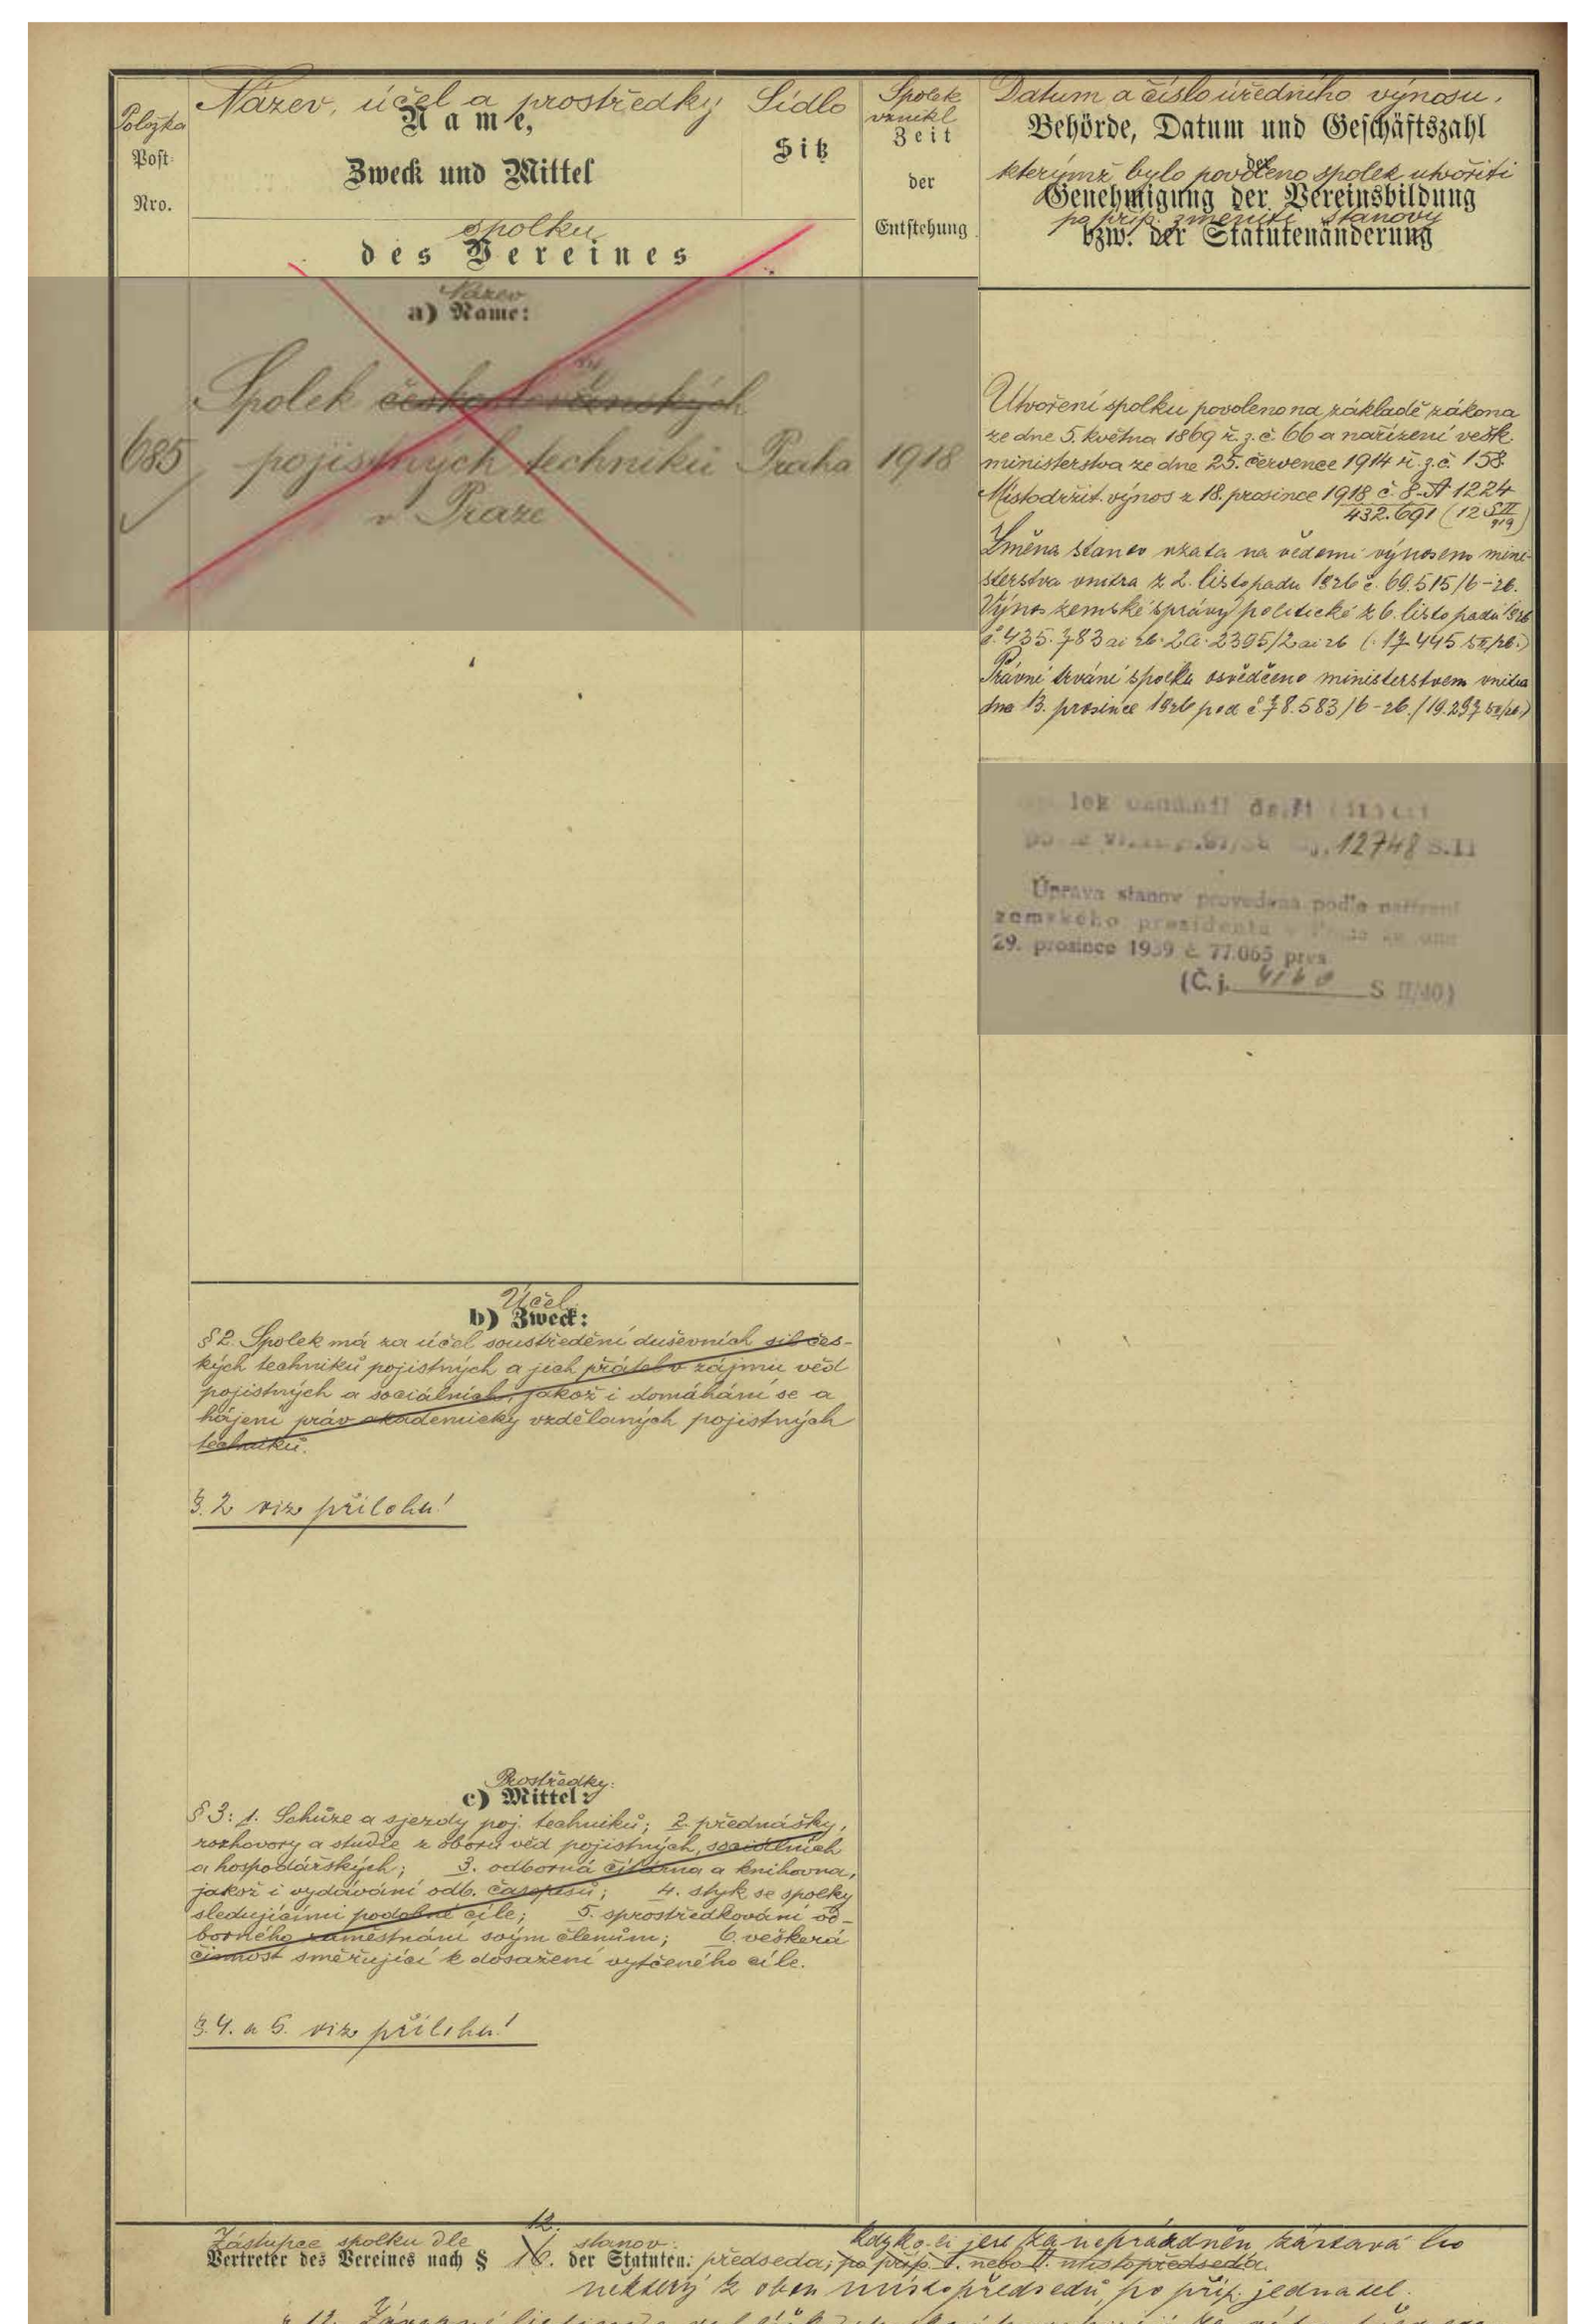 Název, účel a prostředky Sídlo Spolek vznikl Datum a číslo úředního výnosu,
Položka
Post-
Nro.
Name,
Zweck und Mittel
spolku
des Vereines
Sitz
Zeit
der
Entstehung
Behörde, Datum und Geschäftszahl
kterýmž bylo povoleno spolek utvořiti
Genehmigung der Vereinsbildung
po příp. změniti stanovy
bzw. der Statutenänderung
Název
a) Name:
Spolek československých
685 pojistných techniků Praha 1918
v Praze
Utvoření spolku povoleno na základě zákona
ze dne 5. května 1869 ř. z. č. 66 a nařízení vešk.
ministerstva ze dne 25. července 1914 ř. z. č. 158.
Místodržit. výnos z 18. prosince 1918 č. 8-A 1224
432.691
Změna stanov vzata na vědomí výnosem mini-
sterstva vnitra z 2. listopadu 1926 č. 69.515/6-26.
Výnos zemské správy politické z 6. listopadu 1926
č. 435.783 ai 26. 2a. 2395/2 ai 26 (17.445 SII/26.)
Právní trvání spolku osvědčeno ministerstvem vnitra
dne 13. prosince 1926 pod č. 78.583/6-26. (19.297 SII/26.)
12748 S.II
Úprava stanov provedena podle nařízení
zemského presidenta v Praze ze dne
29. prosince 1939 č. 77.065 pres.
(Č. j. S II/40)
Účel
b) Zweck:
§ 2. Spolek má za účel soustředění duševních sil čes-
kých techniků pojistných a jich přátel v zájmu věd
pojistných a sociálních, jakož i domáhání se a
hájení práv akademicky vzdělaných pojistných
techniků.
§. 2 viz přílohu!
Prostředky:
c) Mittel:
§ 3: 1. Schůze a sjezdy poj. techniků; 2. přednášky,
rozhovory a studie z oboru věd pojistných, sociálních
a hospodářských; 3. odborná čítárna a knihovna,
jakož i vydávání odb. časopisů; 4. styk se spolky
sledujícími podobné cíle; 5. sprostředkování od-
borného zaměstnání svým členům; 6. veškerá
činnost směřující k dosažení vytčeného cíle.
§. 4. a 5. viz přílohu!
Zástupce spolku dle 12. stanov:
Vertreter des Vereines nach § 16. der Statuten: předseda, po příp. I. nebo II. místopředseda.
některý z obou místopředsedů, po příp. jednatel.